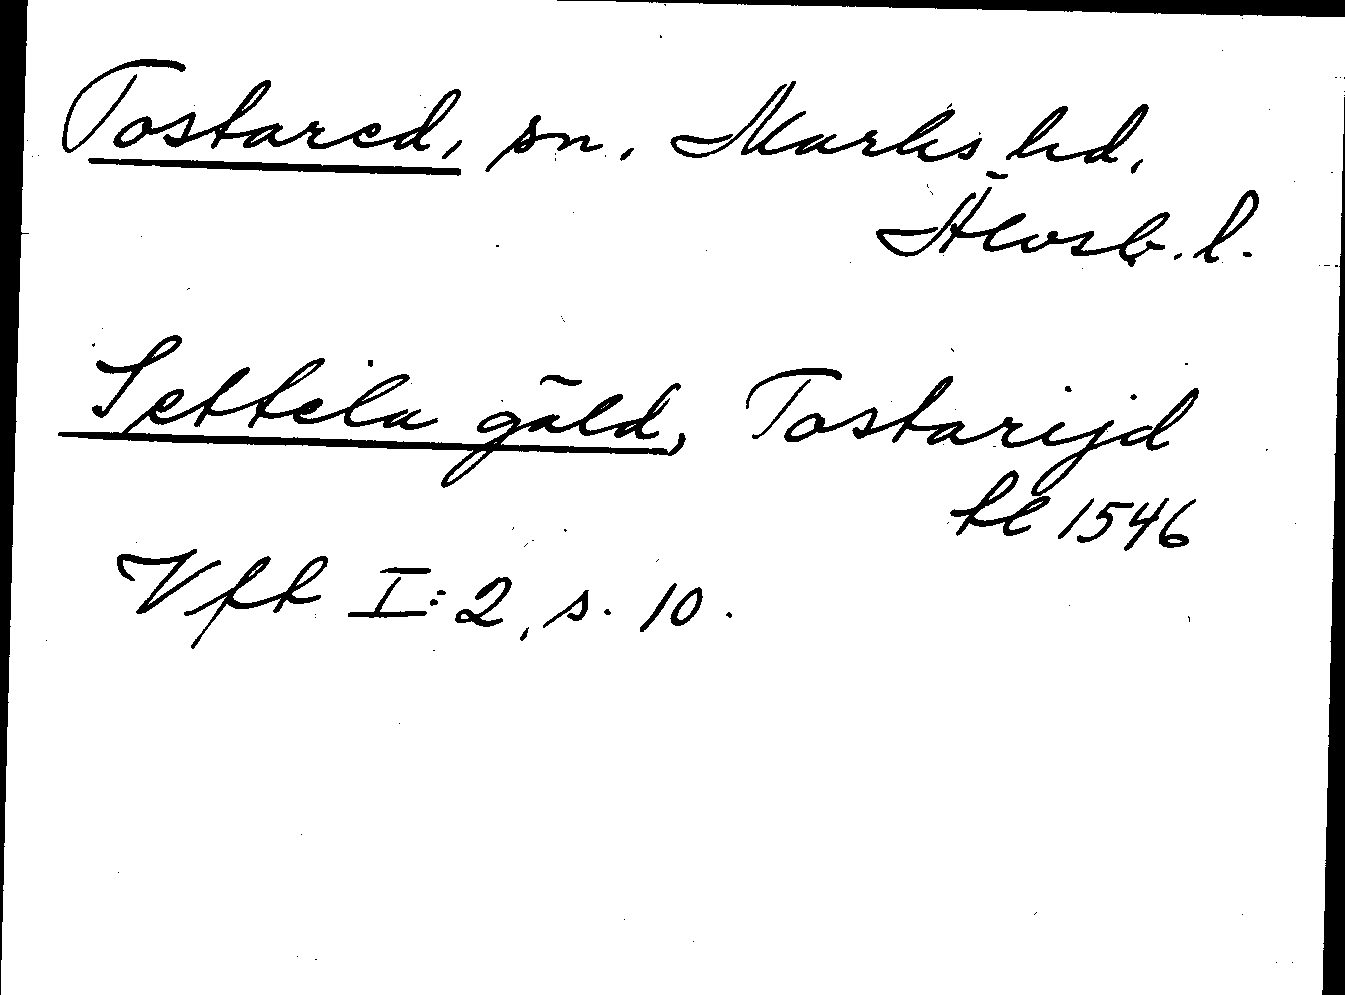 Tostared, sn. Marks hd.
Älvsb. l.
Settela gäld, Tostarijd
hl 1546
Vfh I:2, s. 10.